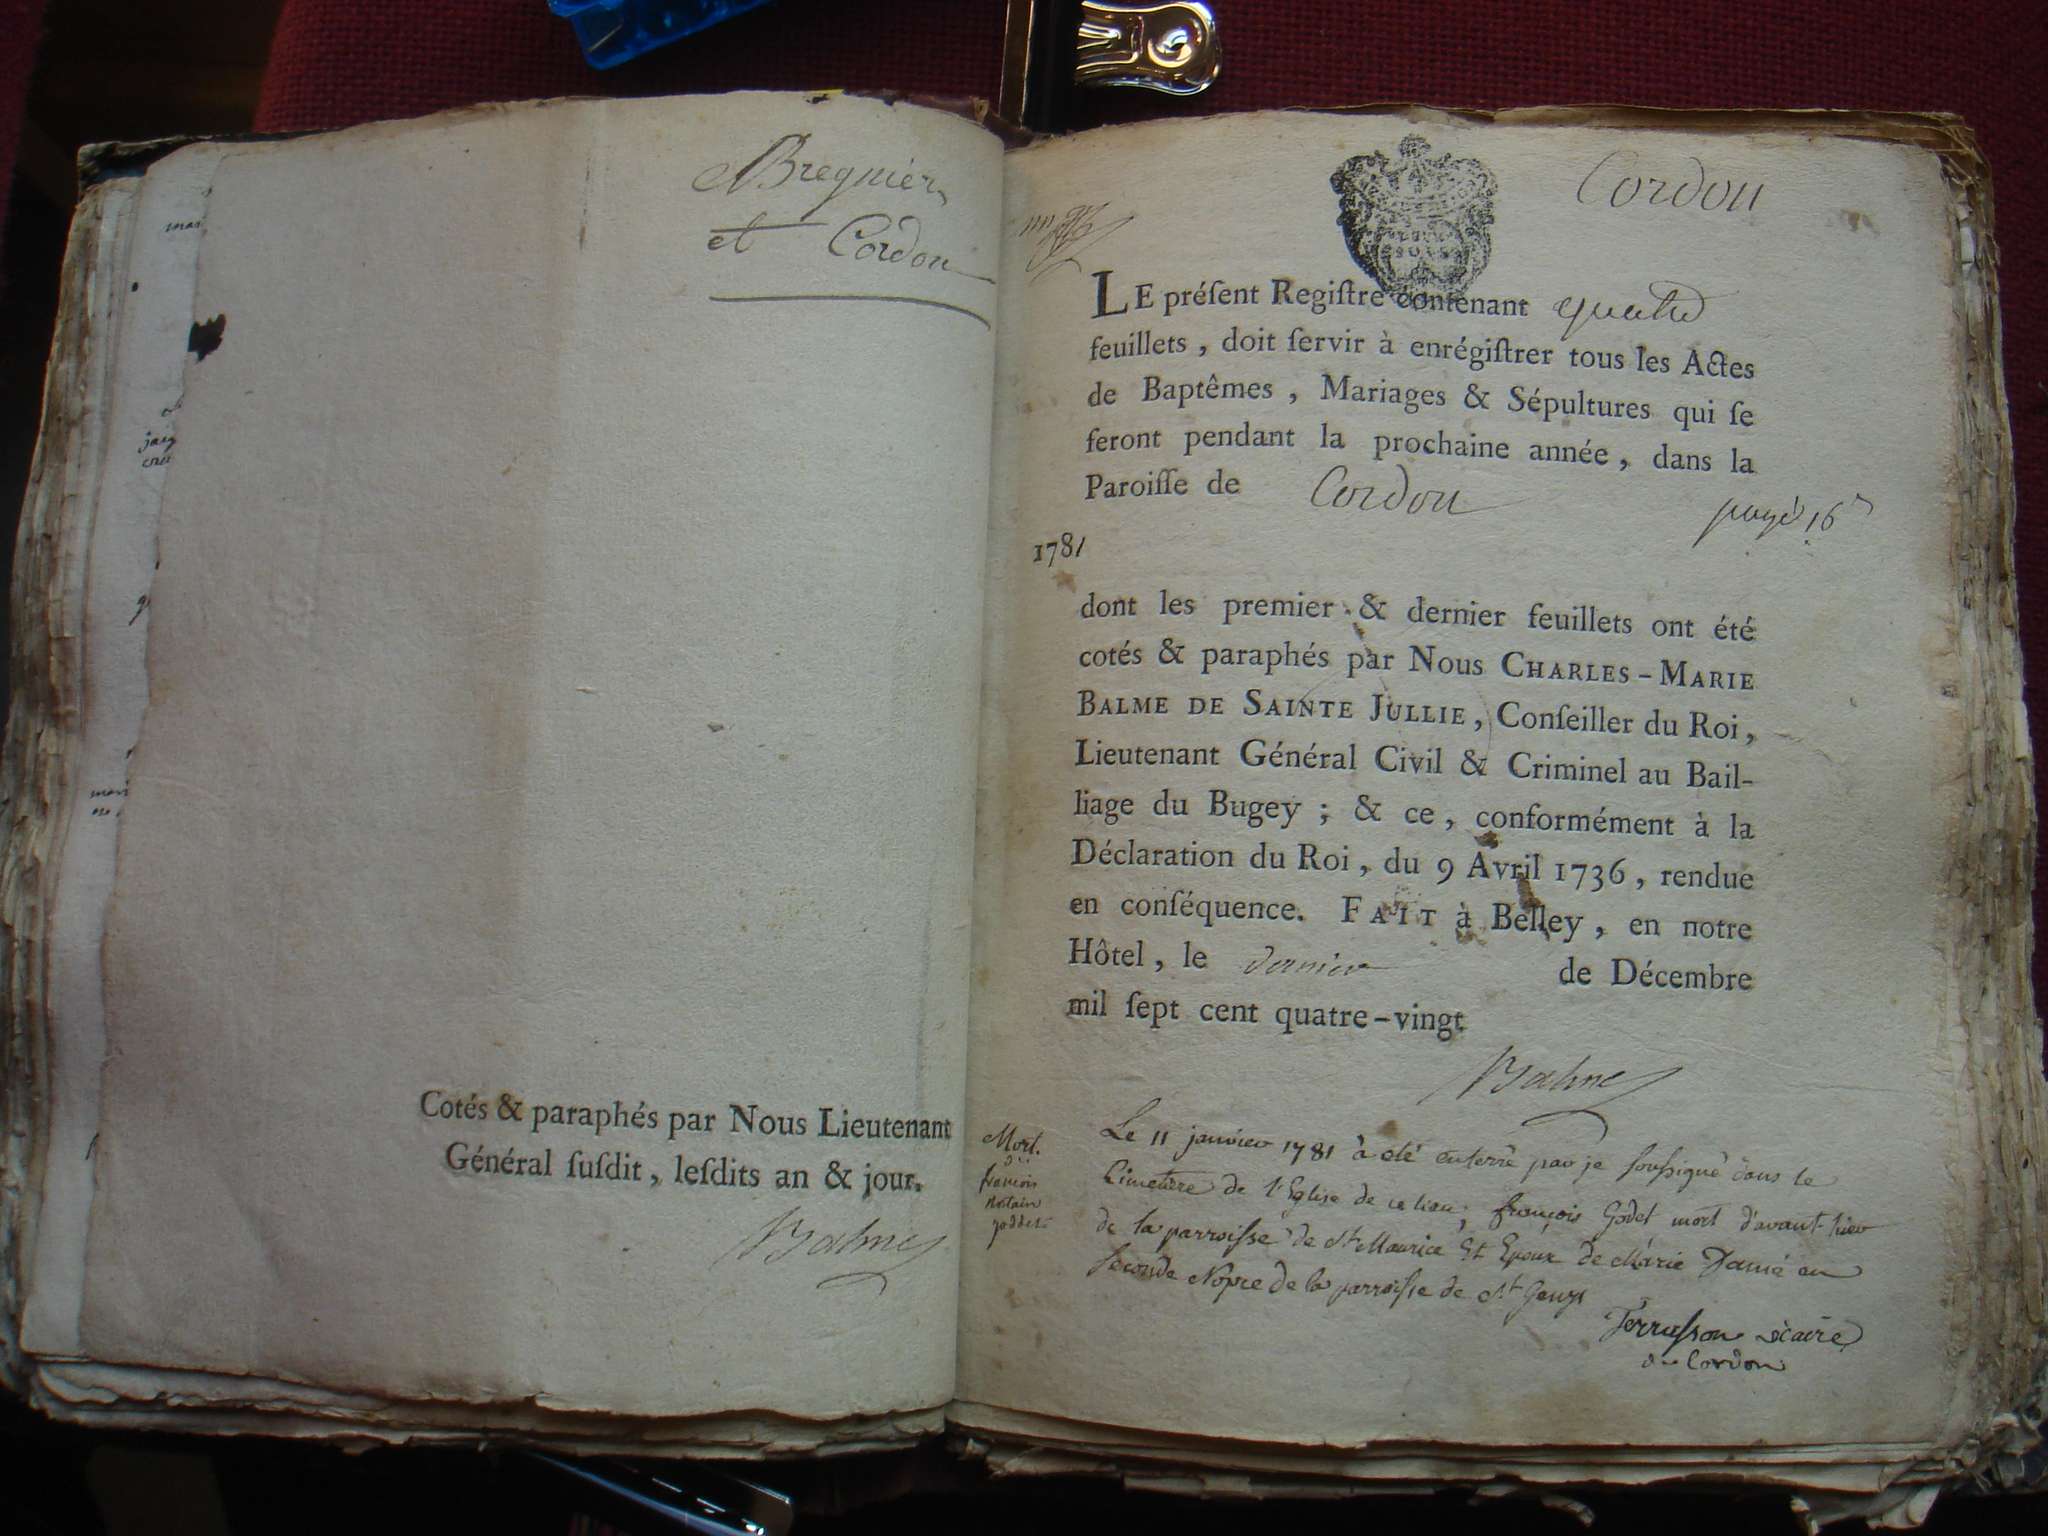 Bregnier
et Cordon
Cotés & paraphés par Nous Lieutenant
Général ſuſdit, leſdits an & jour.
Balme
Cordon
LE préſent Regiſtre contenant quatre
feuillets, doit ſervir à enrégiſtrer tous les Actes
de Baptêmes, Mariages & Sépultures qui ſe
feront pendant la prochaine année, dans la
Paroiſſe de Cordon
payé 16
1781
dont les premier & dernier feuillets ont été
cotés & paraphés par Nous CHARLES-MARIE
BALME DE SAINTE JULLIE, Conſeiller du Roi,
Lieutenant Général Civil & Criminel au Bail-
liage du Bugey; & ce, conformément à la
Déclaration du Roi, du 9 Avril 1736, rendue
en conſéquence. FAIT à Belley, en notre
Hôtel, le dernier de Décembre
mil ſept cent quatre-vingt
Balme
Mort
françois
Le 11 janvier 1781 à eté enterré par je souſsigné dans le
Cimetière de l'Eglise de ce lieu, françois Godet mort d'avant hier
de la parroiſse de St Maurice Et Epoux de Marie en
seconde Nopce de la parroiſse de St Genys
Terraſson vicaire
de Cordon